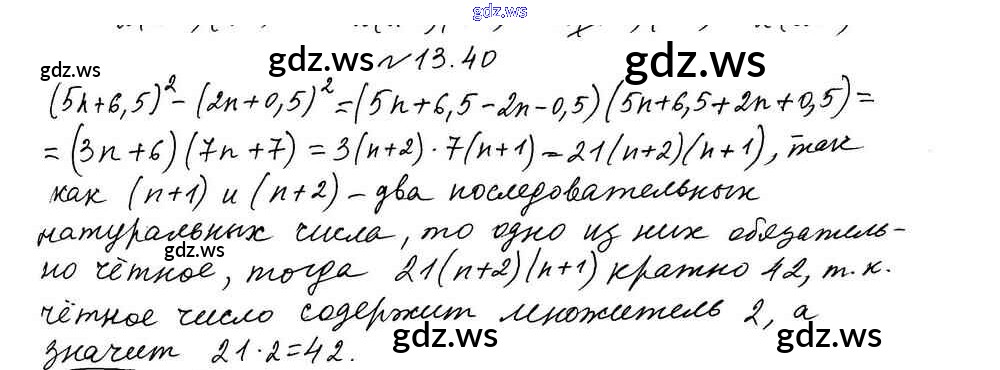 gdz.ws
№ 13.40
gdz.ws
gdz.ws
gdz.ws
(5n+6,5)² - (2n+0,5)² = (5n+6,5-2n-0,5)(5n+6,5+2n+0,5) =
= (3n+6)(7n+7) = 3(n+2)·7(n+1) = 21(n+2)(n+1), так
как (n+1) и (n+2) - два последовательных
натуральных числа, то одно из них обязатель-
gdz.ws
но чётное, тогда 21(n+2)(n+1) кратно 42, т.к.
чётное число содержит множитель 2, а
gdz.ws
gdz.ws
значит 21·2=42.